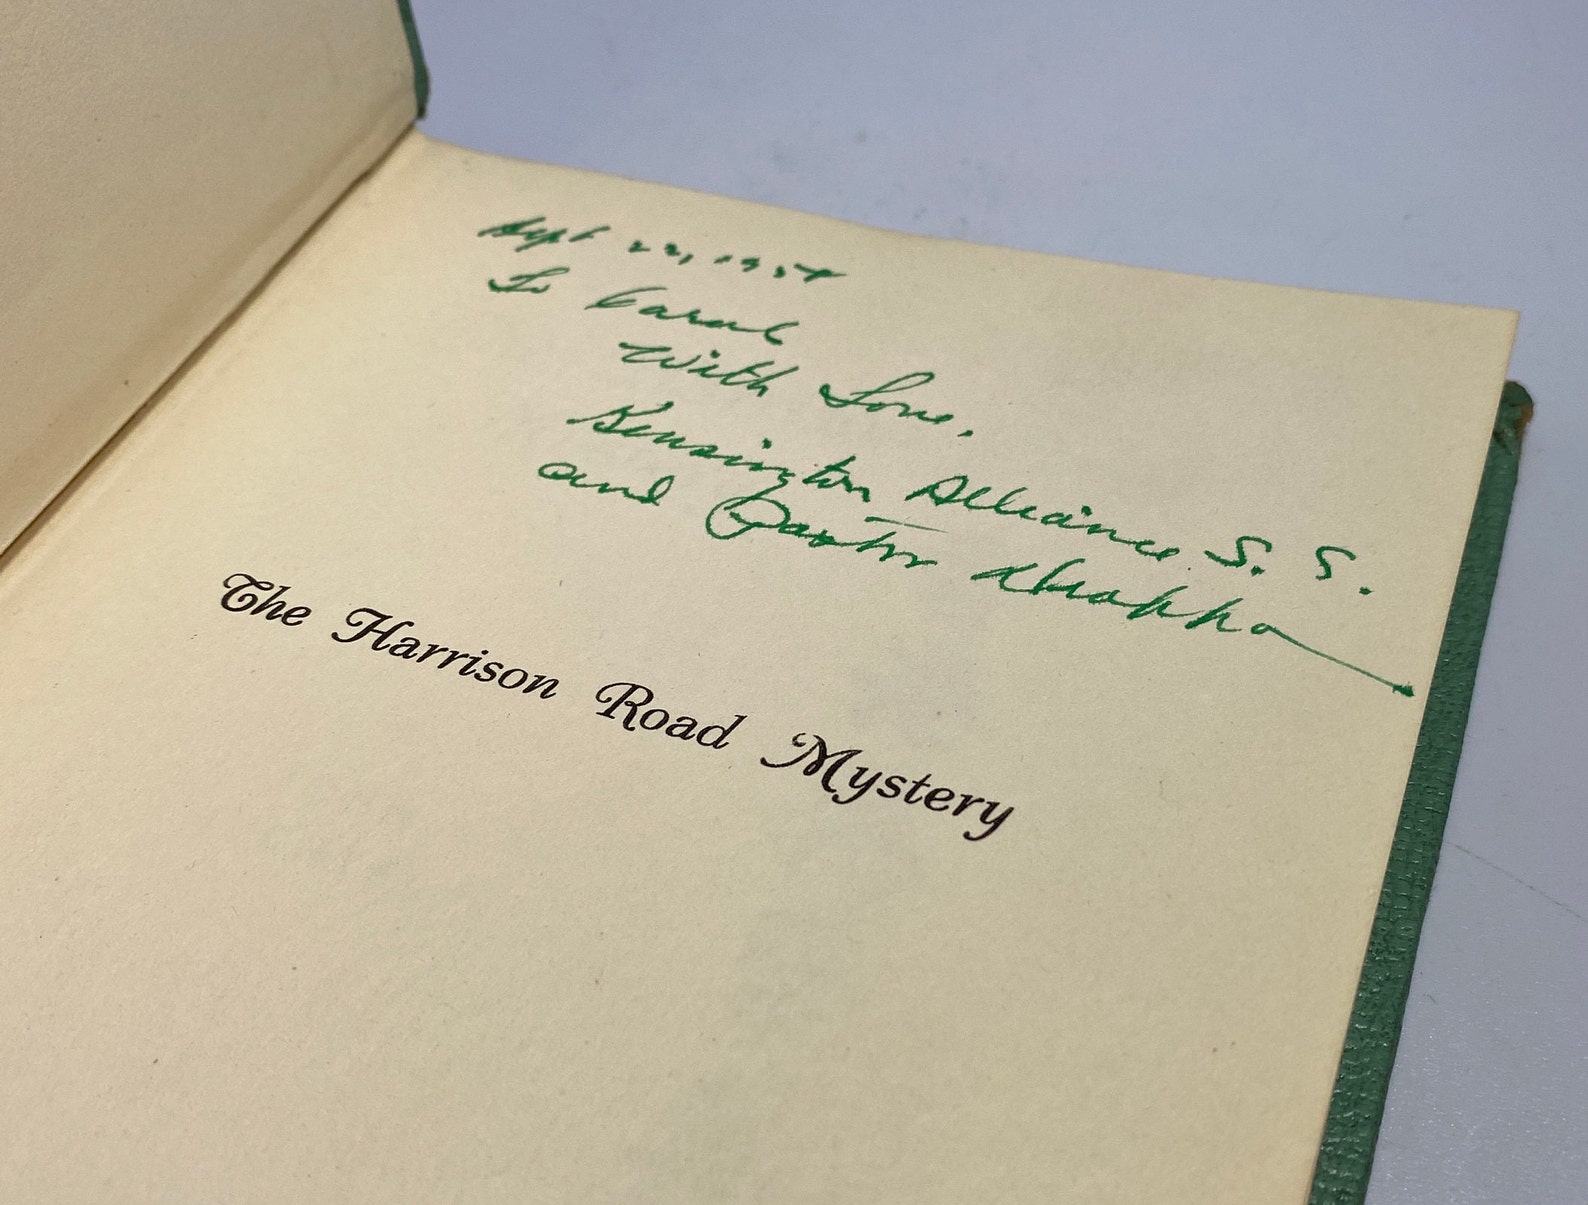 Sept 22, 1957
To Carol
With Love,
Kensington Alliance S. S.
and Pastor
The Harrison Road Mystery